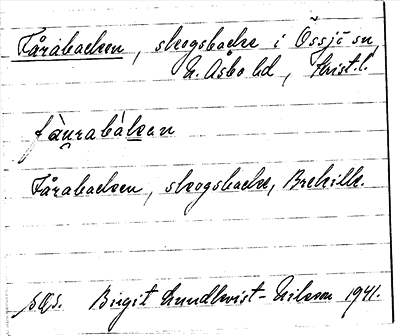 Fårabacken, skogsbacke i Össjö sn,
N. Åsbo hd, Krist. l.
fåu̯rabàkan
Fårabacken, skogsbacke, Brekille.
Birgit Lundkvist-Nilsson 1941.